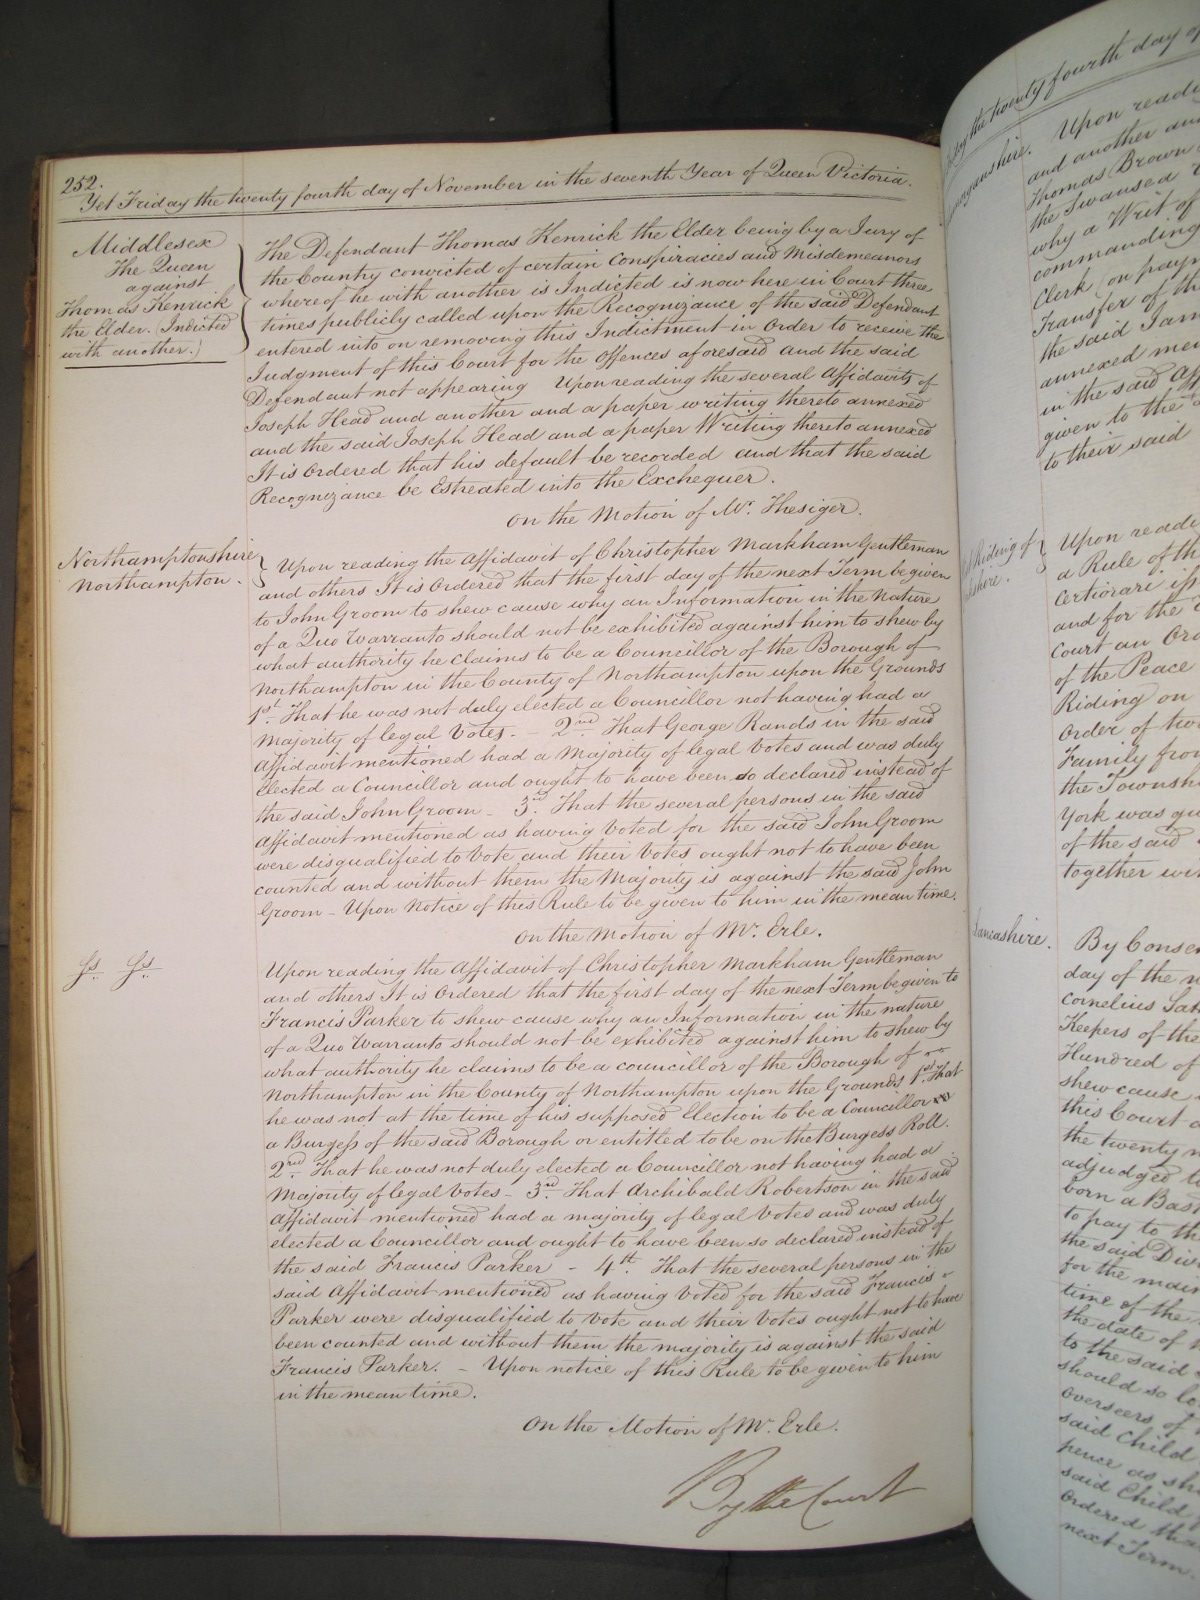 252.
Yet Friday the twenty fourth day of November in the seventh Year of Queen Victoria.
Middlesex
The Queen
against
Thomas Kenrick
the Elder. Indicted
with another.
The Defendant Thomas Kenrick the Elder being by a Jury of
the County convicted of certain Conspiracies and Misdemeanors
whereof he with another is Indicted is now here in Court three
times publicly called upon the Recognizance of the said Defendant
entered into on removing this Indictment in Order to receive the
Judgment of this Court for the Offences aforesaid and the said
Defendant not appearing Upon reading the several Affidavits of
Joseph Head and another and a paper writing thereto annexed
and the said Joseph Head and a paper Writing thereto annexed
It is Ordered that his default be recorded and that the said
Recognizance be Estreated into the Exchequer.
On the Motion of Mr. Thesiger.
Northamptonshire
Northampton.
Upon reading the Affidavit of Christopher Markham Gentleman
and others It is Ordered that the first day of the next Term be given
to John Groom to shew cause why an Information in the nature
of a Quo Warranto should not be exhibited against him to shew by
what authority he claims to be a Councillor of the Borough of
Northampton in the County of Northampton upon the Grounds
1st. That he was not duly elected a Councillor not having had a
Majority of legal Votes. - 2nd. That George Rands in the said
Affidavit mentioned had a Majority of legal Votes and was duly
elected a Councillor and ought to have been so declared instead of
the said John Groom - 3rd. That the several persons in the said
Affidavit mentioned as having Voted for the said John Groom
were disqualified to Vote and their Votes ought not to have been
counted and without them the Majority is against the said John
Groom - Upon Notice of this Rule to be given to him in the mean time.
On the Motion of Mr. Erle.
Upon reading the Affidavit of Christopher Markham Gentleman
and others It is Ordered that the first day of the next Term be given to
Francis Parker to shew cause why an Information in the nature
of a Quo Warranto should not be exhibited against him to shew by
what authority he claims to be a councillor of the Borough of
Northampton in the County of Northampton upon the Grounds 1st. That
he was not at the time of his supposed Election to be a Councillor
a Burgess of the said Borough or entitled to be on the Burgess Roll.
2nd. That he was not duly elected a Councillor not having had a
Majority of legal Votes - 3rd. That Archibald Robertson in the said
Affidavit mentioned had a majority of legal Votes and was duly
elected a Councillor and ought to have been so declared instead of
the said Francis Parker - 4th. That the several persons in the
said Affidavit mentioned as having Voted for the said Francis
Parker were disqualified to Vote and their Votes ought not to have
been counted and without them the majority is against the said
Francis Parker. - Upon notice of this Rule to be given to him
in the mean time.
On the Motion of Mr. Erle.
By the Court
the twenty fourth day of
Upon readi
and another and
Thomas Brown
the Swansea
why a Writ of
commanding
Clerk (on paym
Transfer of th
the said Jam
annexed men
in the said Aff
given to the
to their said
Riding of
Upon readi
a Rule of th
Certiorari iss
and for the
Court an Ord
of the Peace
Riding on
Order of two
Family from
the Townsh
York was qu
of the said
together wit
Lancashire.
By Consen
day of the n
Cornelius
Keepers of the
Hundred of
shew cause
this Court
the twenty n
adjudged t
born a Bast
to pay to th
the said
for the main
time of the
the date of
to the said
should so lo
Overseers of
said Child
pence as sh
said Child
Ordered tha
next Term.